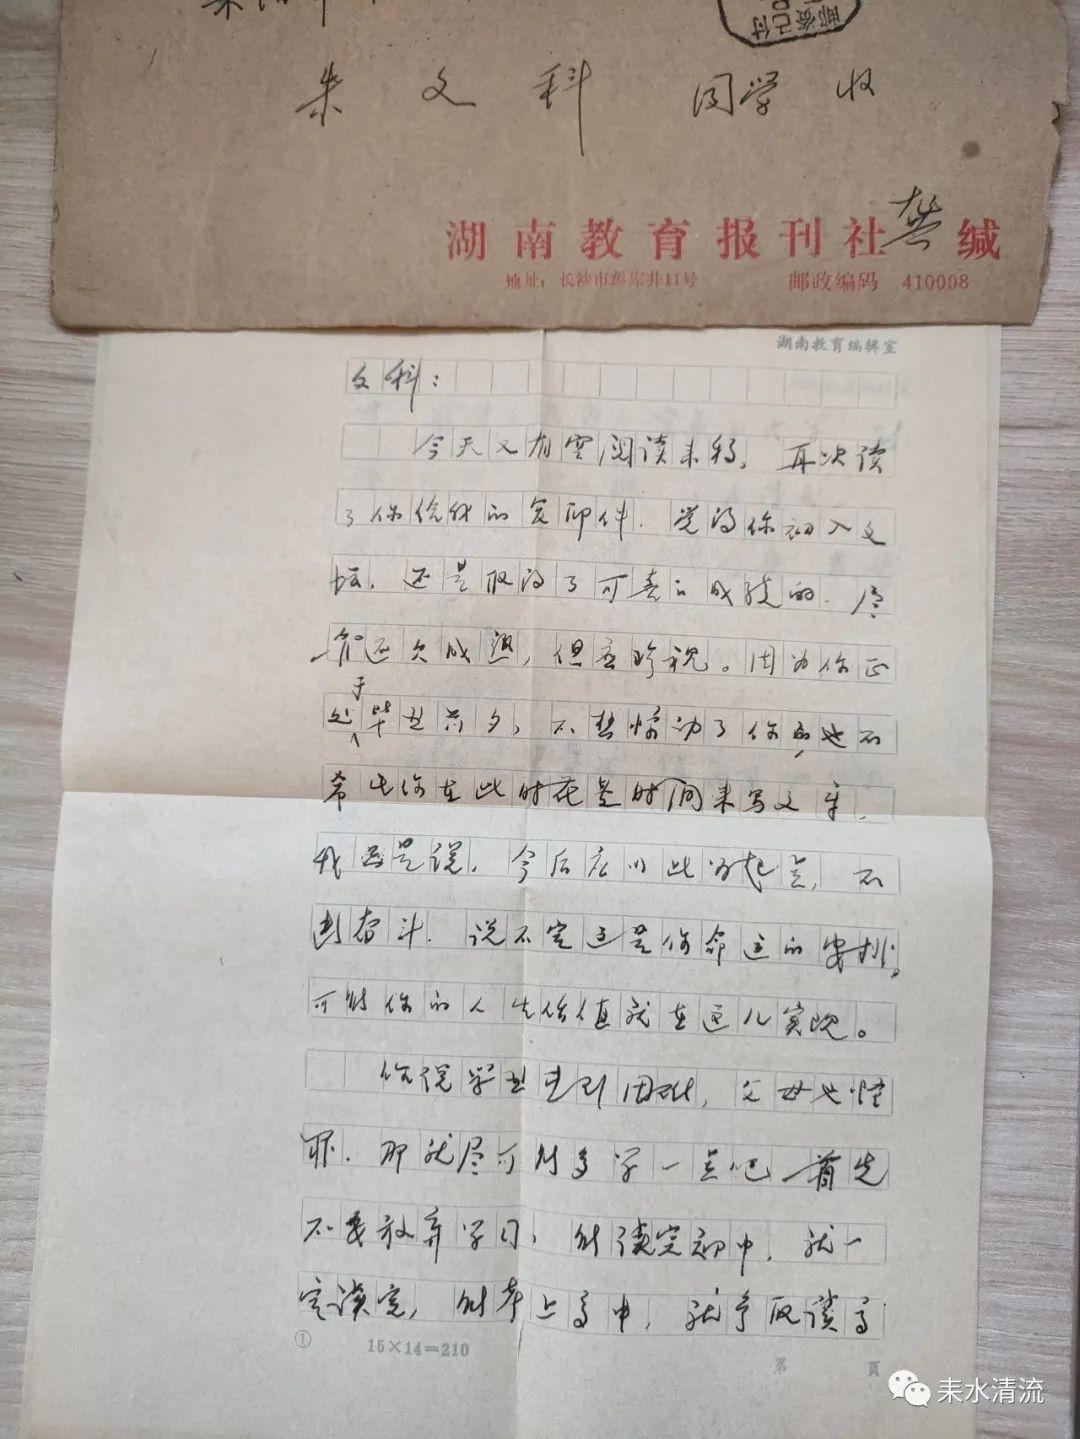 邮资已付
朱文科 同学 收
湖南教育报刊社 龚 缄
地址：长沙市彭家井11号 邮政编码 410008
湖南教育编辑室
文科：
今天又有空阅读来稿，再次读
了你给我的复印件，觉得你初入文
坛，还是取得了可喜的成绩的，尽
管还欠成熟，但应珍视。因为你正
处于毕业前夕，不想惊动了你，也不
希望你在此时花是时间来写文章，
我还是说，今后应以此为起点，不
断奋斗，说不定这是你命运的安排，
可能你的人生价值就在这儿实现。
你说学业遇到困难，父母也怪
罪，那就尽可能多学一点吧。首先
不要放弃学习，能读完初中，就一
定读完，能考上高中，就争取读高
① 15×14=210
第 頁
耒水清流